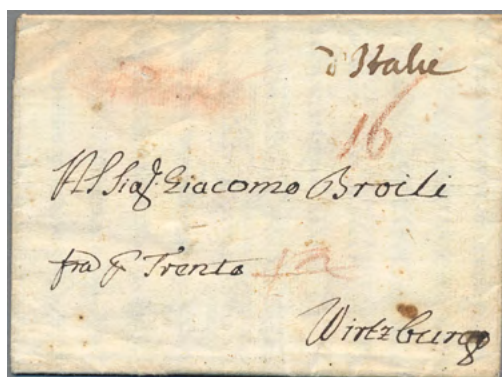 d'Italie
16
Al Sigr. Giacomo Broili
fra p Trento
Wirtzburg